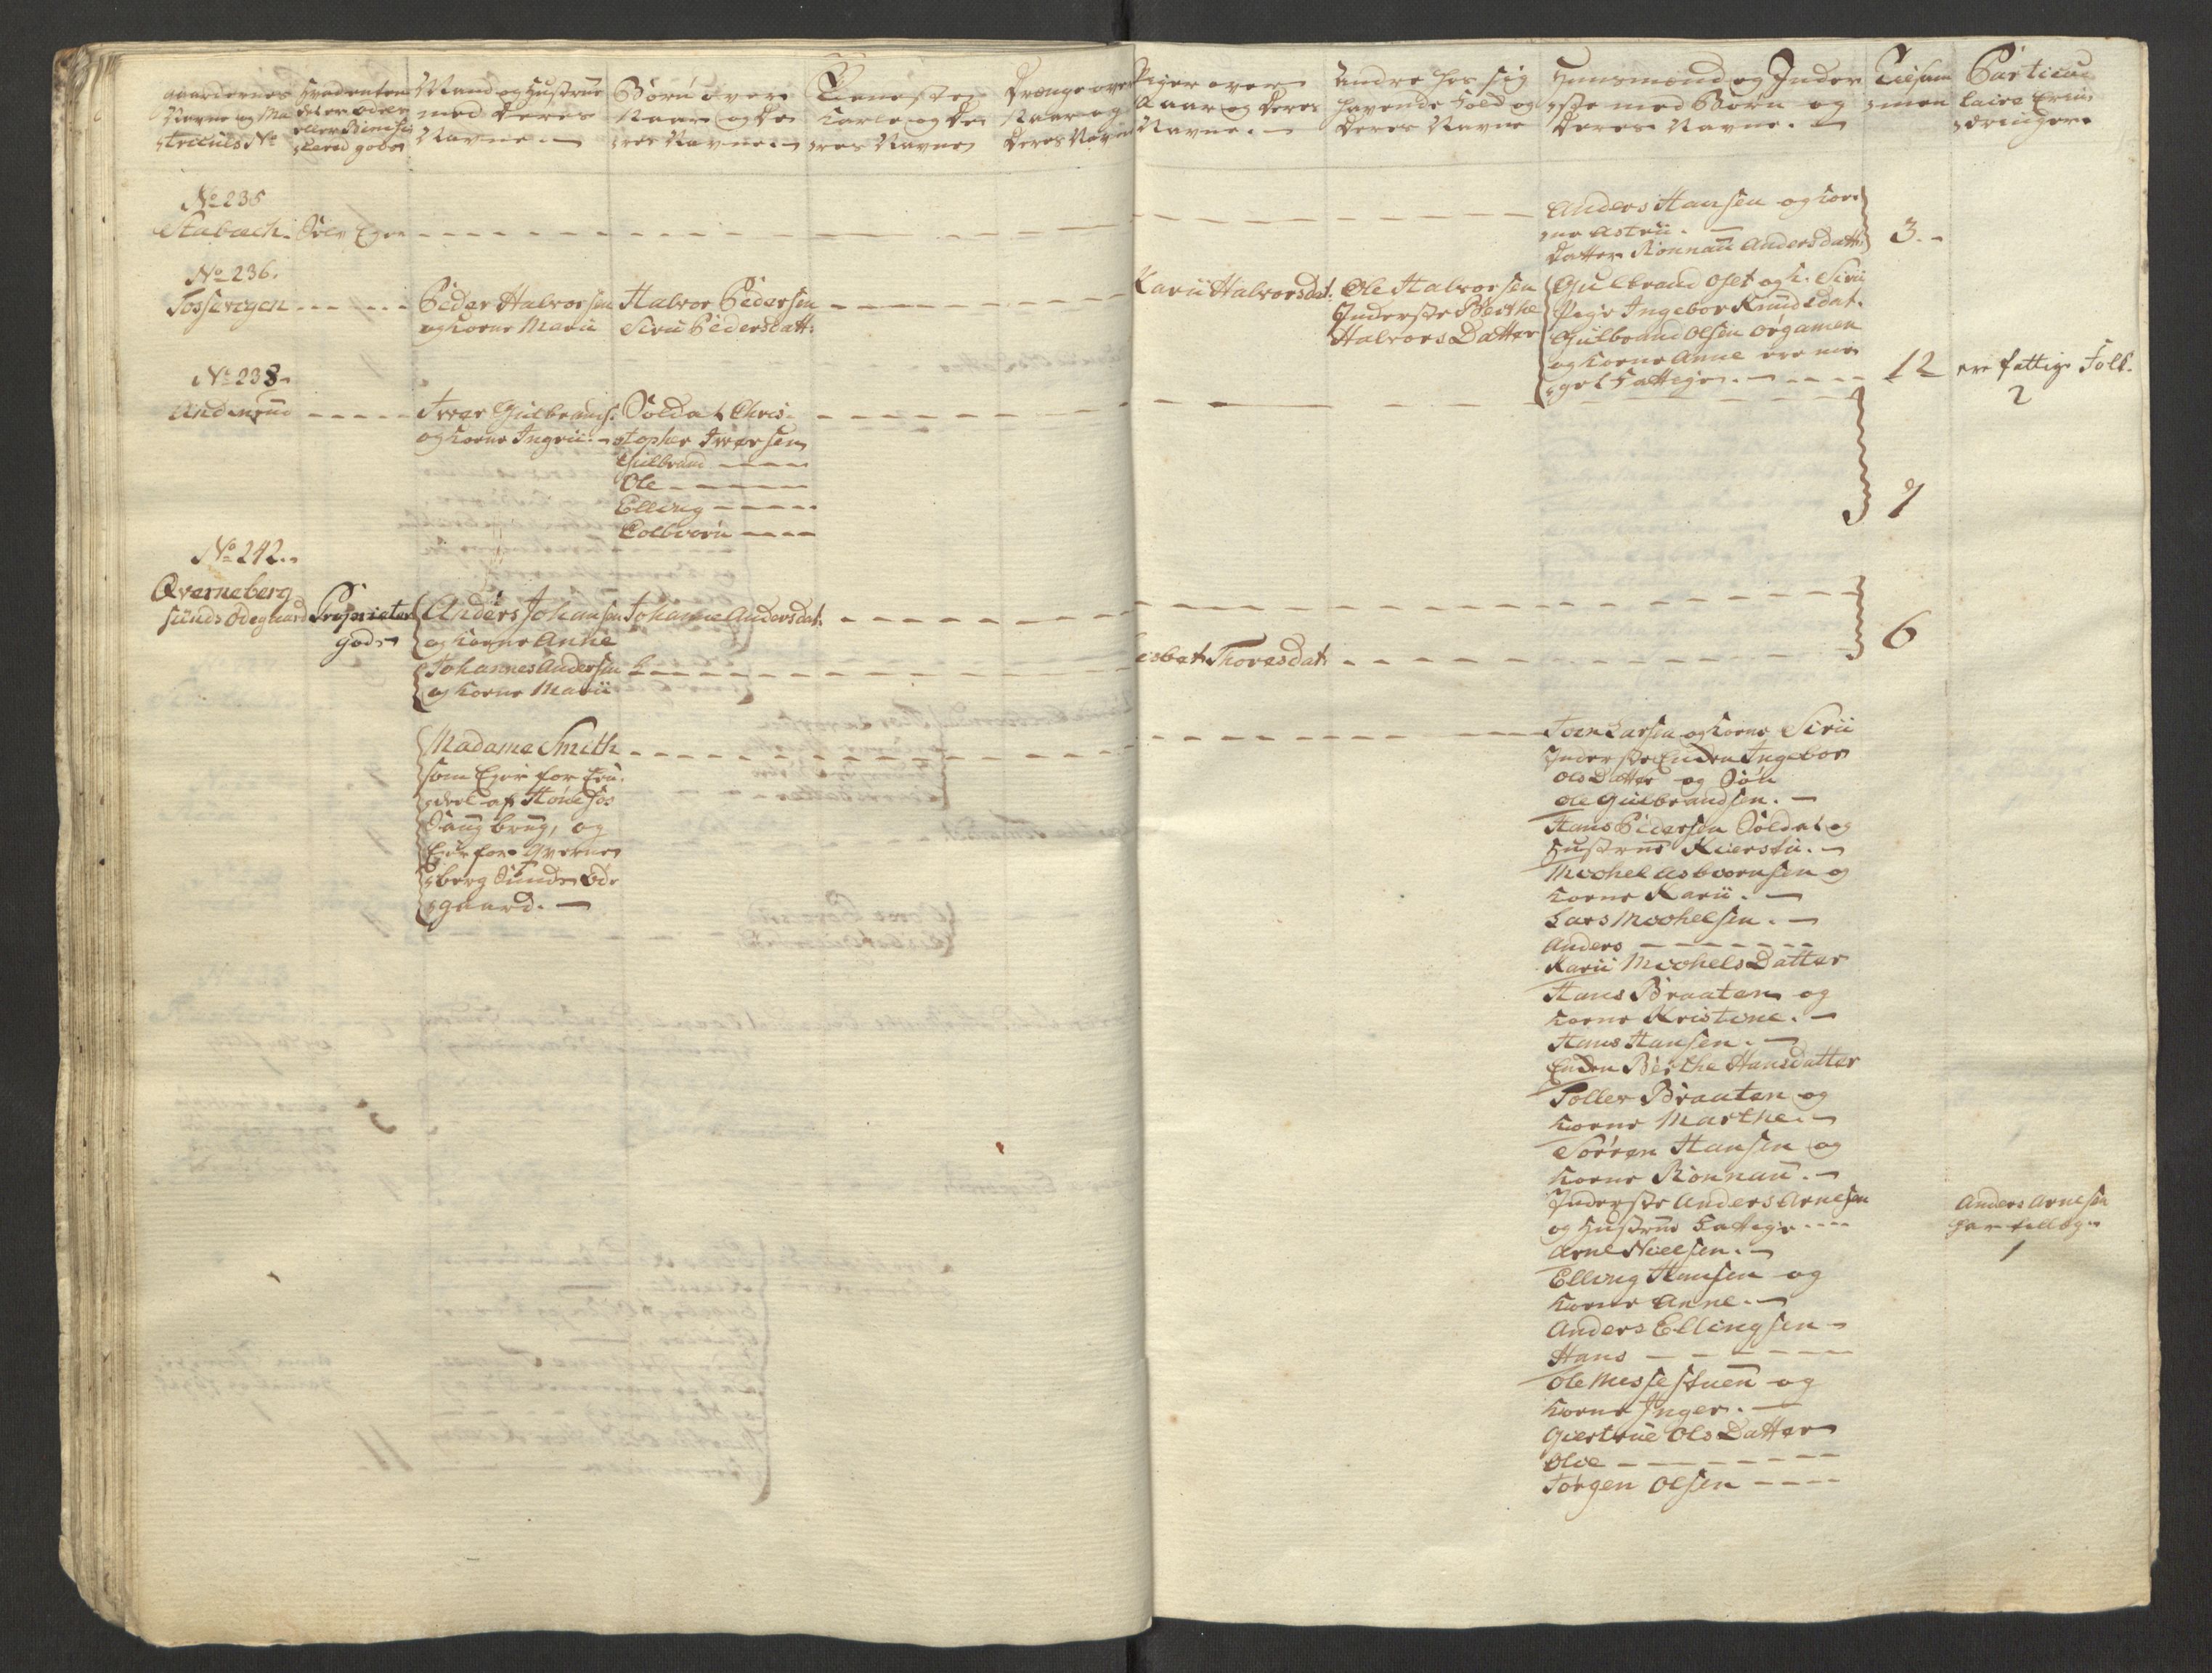 gaardernes
Navne og Ma
triculs No
Mand og Hustrue
med deres
Navne.
Børn over
Aar og de
res Navne.
Tieneste
Karle og de
res Navne
Drænge over
Aar og
deres Navne
Piger over
Aar og deres
Navne.
Andre hos sig
havende Fold og
deres Navne
Huusmænd og Inder
ste med Børn og
deres Navne.
Tilsam
men
Particu
laire Erin
dringer.
No 235
Stabæch. Selv Eger
Anders Hansen og Kone
Astrii.
Datter Rønnau Andersdatt:
3.
No 236.
Tossevigen
Peder Halvorsen
og Kone Marii
Halvor Pedersen
Sirii Pedersdatt:
Karii Halvorsdat.
Ole Halvorsen
Inderste Berthe
Halvors Datter
Gulbrand Oset og K. Sirii
Pige Ingebor Knudsdat.
Gulbrand OlsenØrgamen
og Kone Anne ere me
get Fattige.
12
ere fattige Folk.
2
No 238
Andersrud
Iver Gulbrands:
og Kone Ingrii.
Soldat Chris-
topher Iversen
Gulbrand
Ole
Elling
Colbiørn
9
No 242.
Qverneberg
sunds Ødegaard
Proprietær
gods
Anders Johansen
og Kone Anne
Johannes Andersen
og Kone Marii
Johanne Andersdat.
Lisbet Thoresdat:
6
Madame Smith
som Ejer for
deel af Hønefos
Saug brug, og
Ejer for Qvernes
berg Sunds Øde
gaard.
Joen Larsen og Kone Sirii
Inderste Enken Ingebor
Ols Datter og Søn
Ole Gulbrandsen.
Hans Pedersen Soldat og
Hustrue Kiersti.
Michel Asbiørnsen og
Kone Karii.
Lars Michelsen.
Anders
Karii Michels Datter
Hans Braaten og
Kone Kristine.
Hans Hansen.
Enken Berthe Hansdatter
Toller Braaten og
Kone Marthe.
Sørren Hansen og
Kone Rønnau.
Inderste Anders Arnesen
og Hustrue Fattige
Arne Nielsen.
Elling Hansen og
Kone Anne.
Anders Ellingsen
Hans
Ole Messestuen og
Kone Inger.
Giertrue Ols Datter
Olve
Jørgen Olsen
Anders Arnesen
1